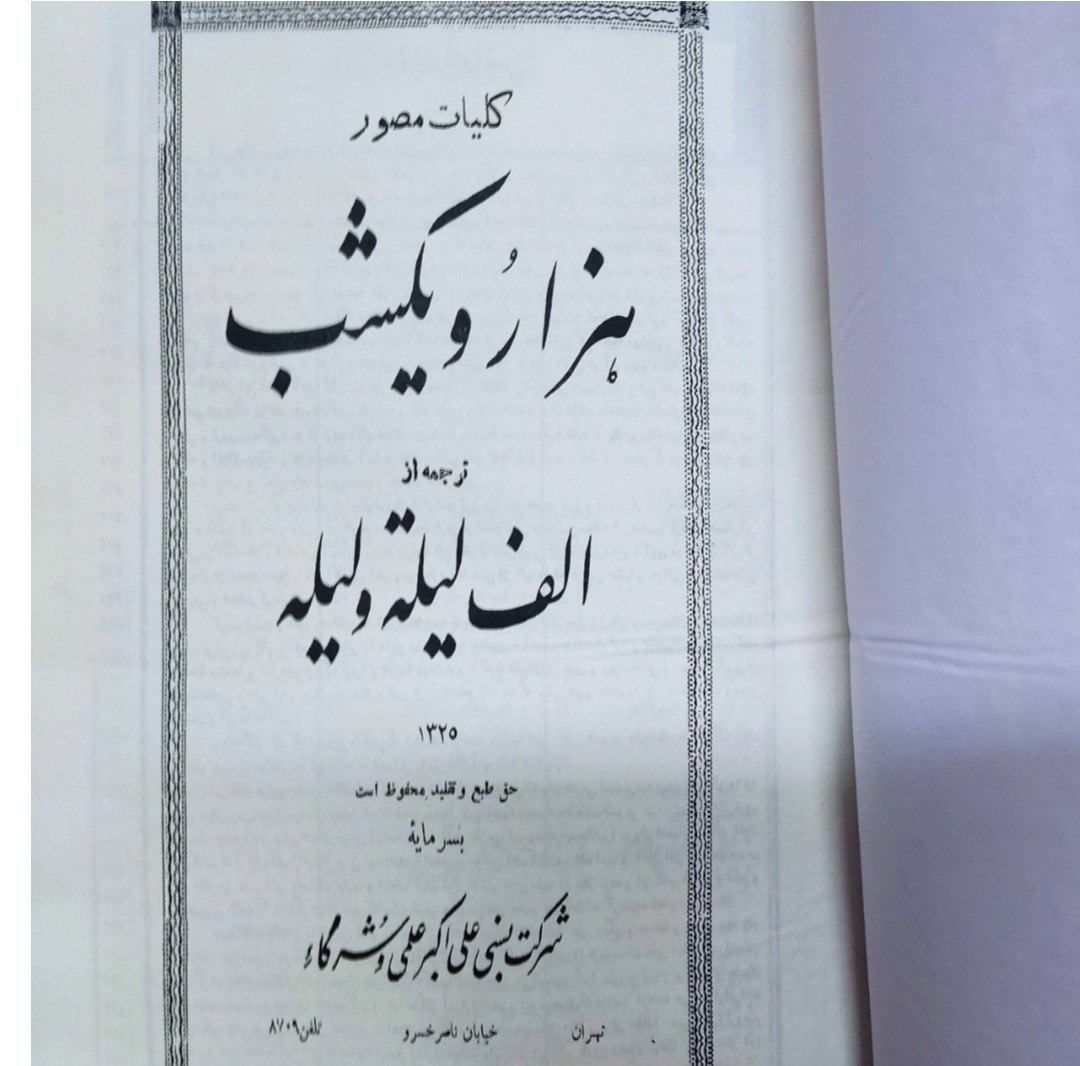 کلیات مصور
هزار و یکشب
ترجمه از
الف لیلة و لیله
۱۳۲۵
حق طبع و تقلید محفوظ است
بسرمایهٔ
شرکت نسبی علی اکبر علمی و شرکاء
تهران خیابان ناصر خسرو تلفن ۸۷۰۹